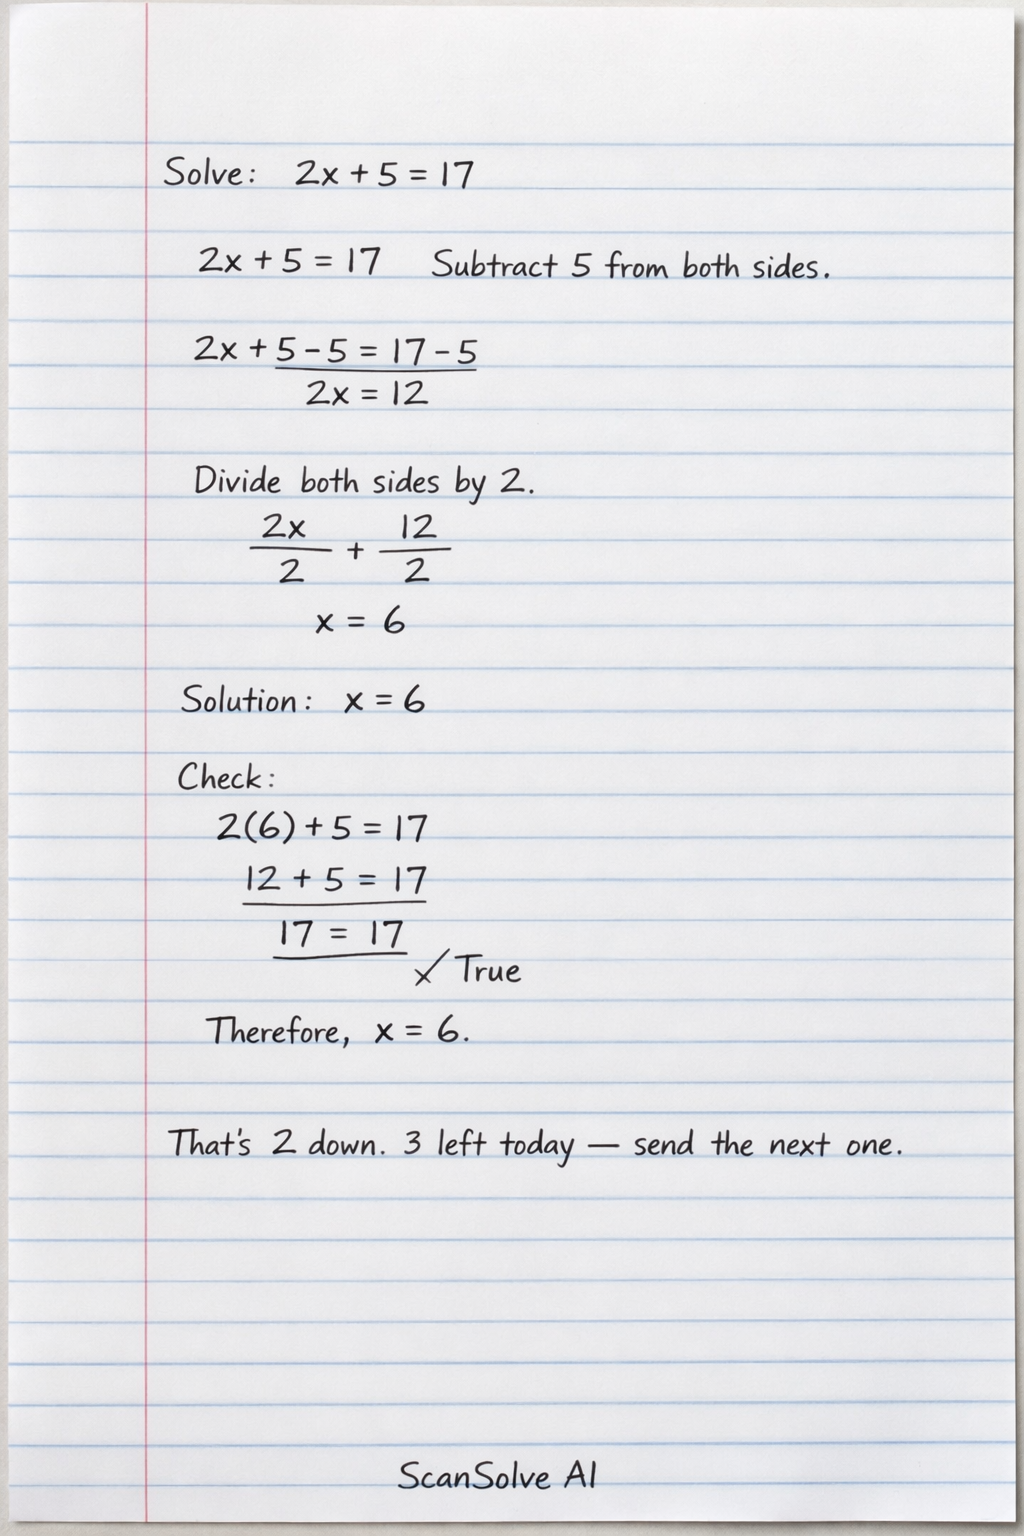 Solve: 2x + 5 = 17
2x + 5 = 17 Subtract 5 from both sides.
2x + 5 - 5 = 17 - 5
2x = 12
Divide both sides by 2.
2x/2 + 12/2
x = 6
Solution: x = 6
Check:
2(6) + 5 = 17
12 + 5 = 17
17 = 17
✓ True
Therefore, x = 6.
That's 2 down. 3 left today — send the next one.
ScanSolve AI